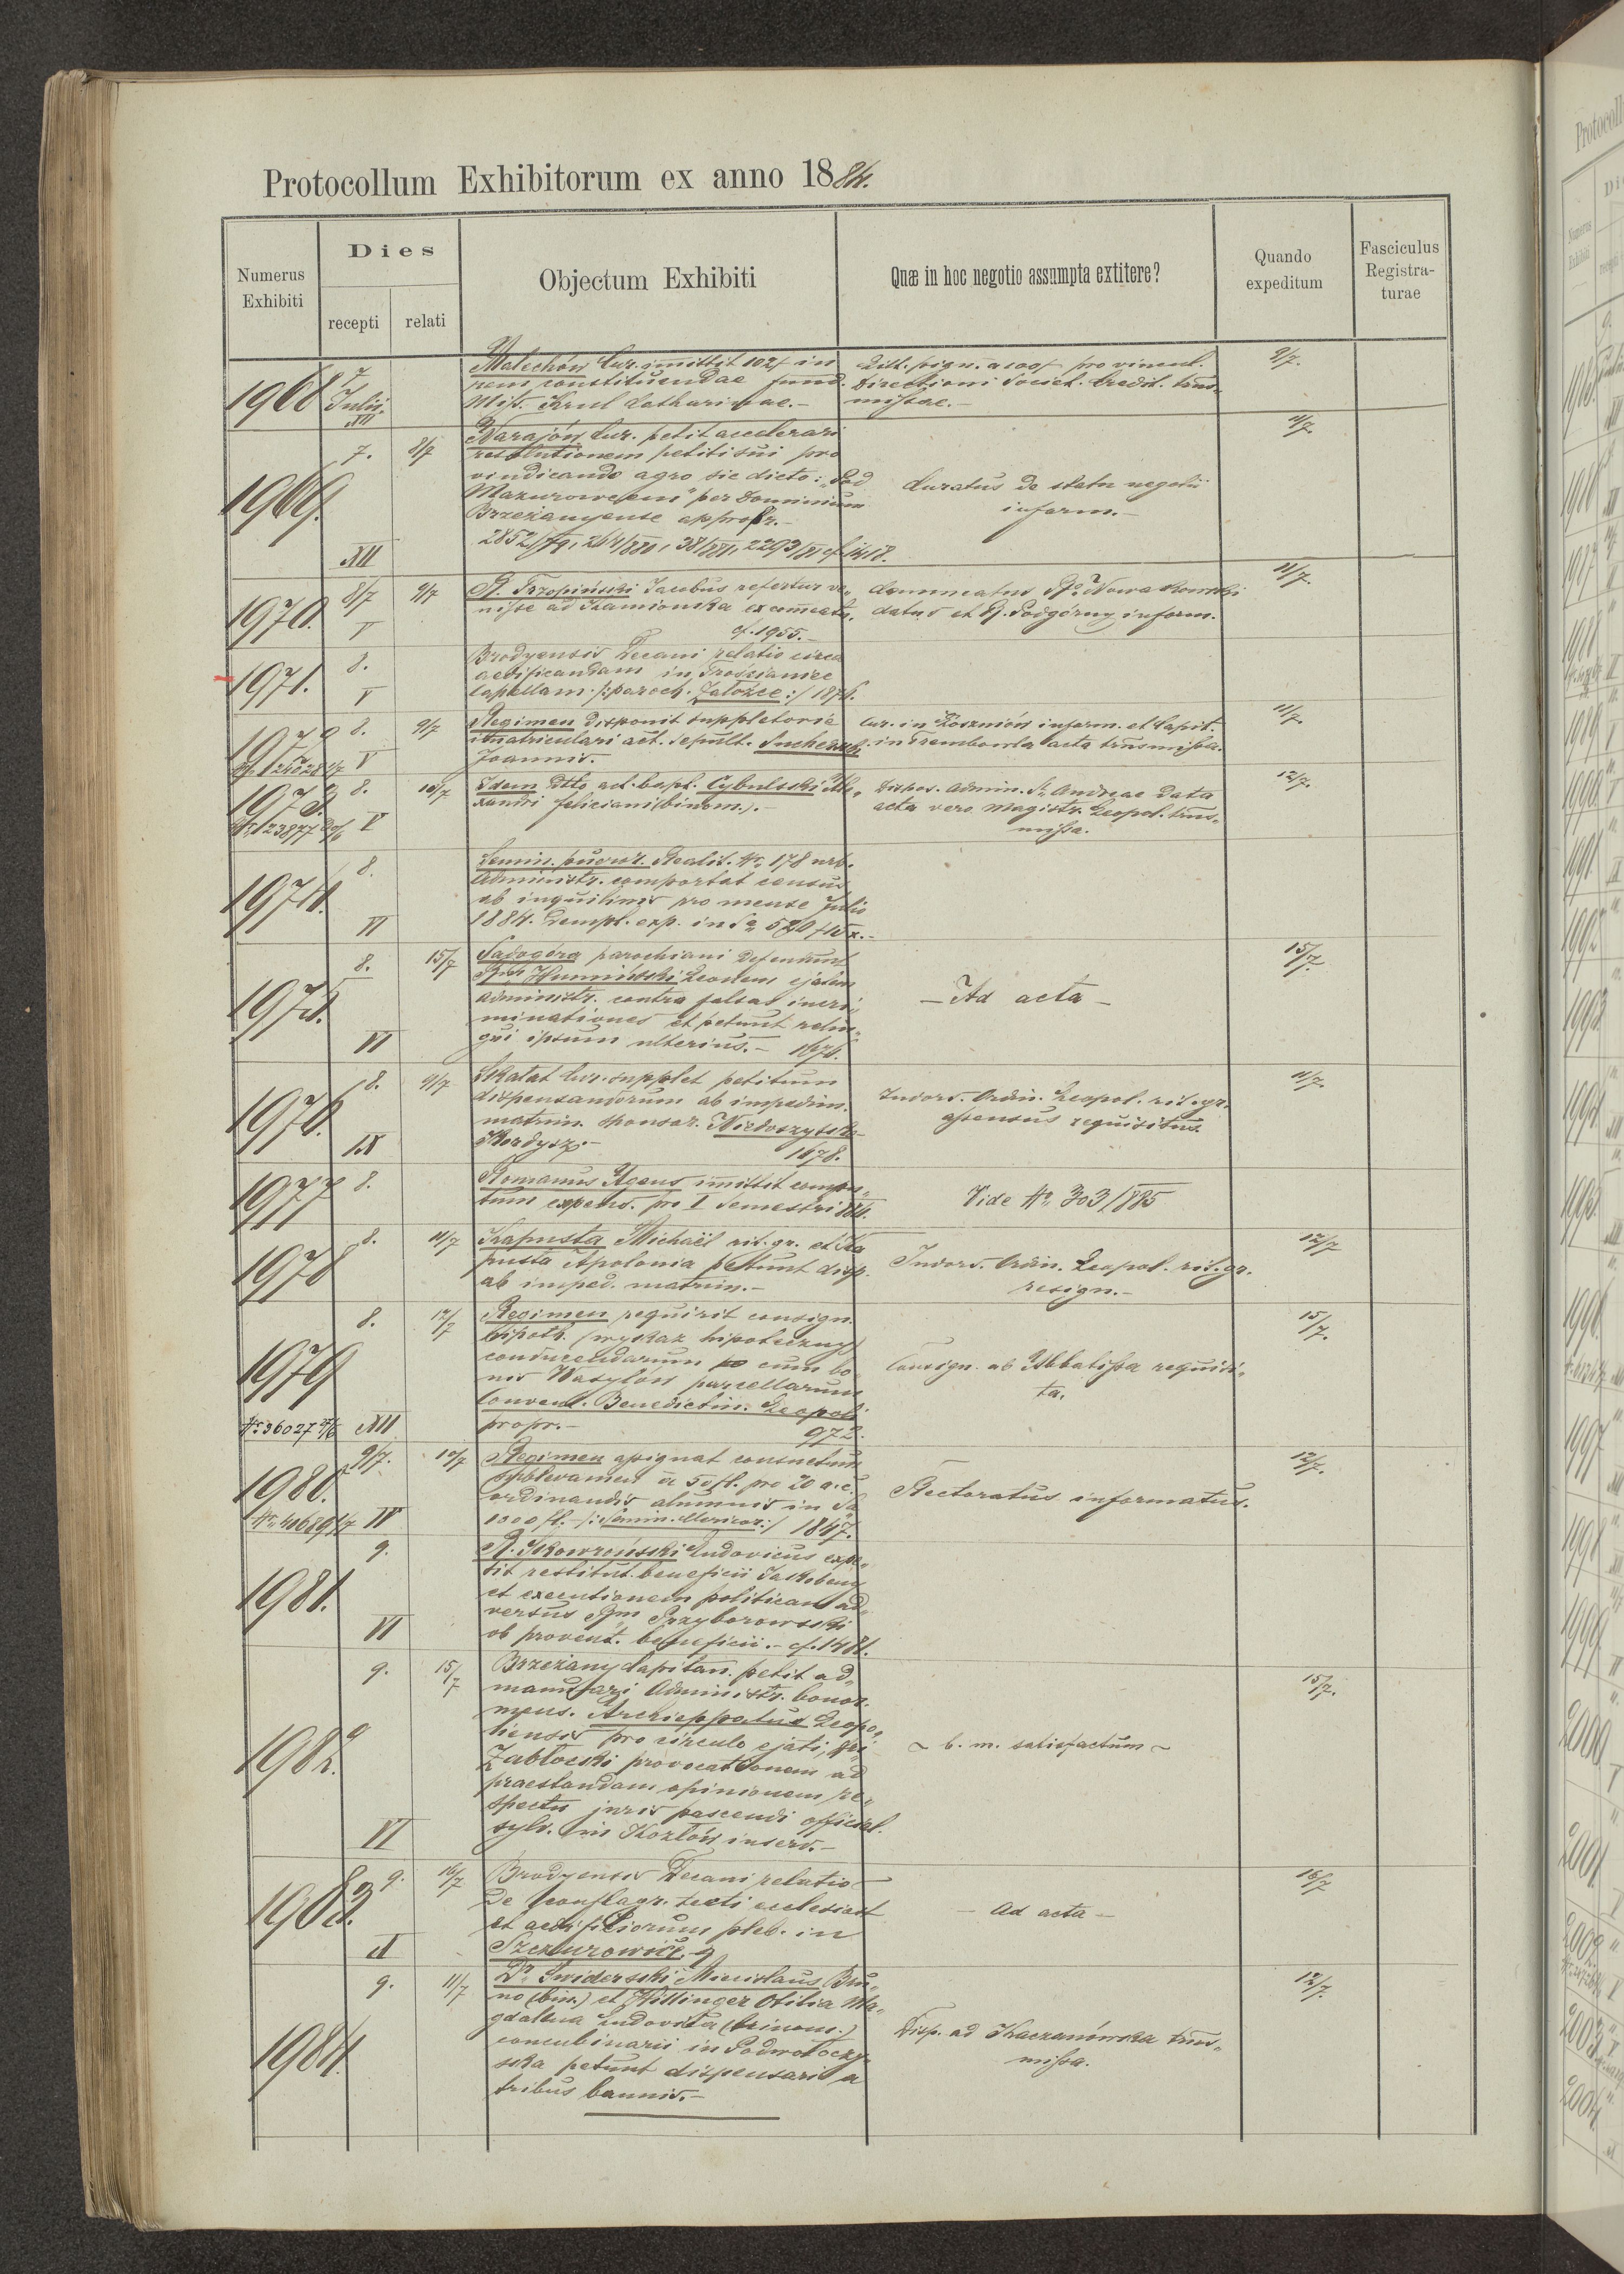 Protocollum Exhibitorum ex anno 1884.
Numerus Exhibiti
Dies
recepti
relati
Objectum Exhibiti
Quæ in hoc negotio assumpta extitere?
Quando expeditum
Fasciculus Registra-
turae
1968
7
Julii.
XII
Malechów Cur. immittit 102 f in
rem constituendae fund.
Miss. Krul Catharinae.-
Litt. pign. a 100 f pro vincul.
Directioni Societ. Credit. trns„
missae.-
9/7.
1969.
7.
8/7
XII
Narajów Cur. petit accelerari
resolutionem petiti sui pro
vindicando agro sic dicto: „Pod
Mazurowem" per Dominium
Brzeżanyense appropr.-
2852/879, 264/880, 38/881, 2293/81 cf. 1418.
Curatus de statu negotii
inform.-
11/7.
1970.
8/7
V
9/7
R. Trzopiński Jacobus refertur ve„
nisse ad Kamionka ex comeatu.
cf. 1955.-
Commeatus R. Nowakowski
datus et R. Podgórny inform.
11/7.
1971.
8.
V
Brodyensis Decani relatio circa
aedificandam in Trościaniec
capellam /:paroch. Załoźce:/ 1876.
1972
8.
V
9/7
Regimen disponit suppletorie
imatriculari act. sepult.
Joannis.
Cur. in Kosznów inform. et Capit.
in Trembowla acta trnsmissa.
11/7.
1973.
8.
V
10/7
Idem dtto act. bapt. Cybulski Ale„
xandri Feliciani (binom.).-
Dispos. Admin. S. Andreae data
acta vero Magistr. Leopol. trns„
missa.
12/7.
1974.
8.
VI
Semin. puror. Realit. No. 178 urb.
Administr. comportat census
ab inquilinis pro mense Julio
1884.
1975.
8.
VI
15/7
Sadogóra parochiani defendunt
Rm Leonem ejatem
administr. contra falsas incri„
minationes et petunt relin„
qui ipsum ulterius.- 1674.
- Ad acta -
15/7.
1976.
8.
IX
9/7
Skałat Cur. supplet petitum
dispensandorum ab impedim.
matrim. sponsor.
Kordysz.-
1678.
Indors. Ordin. Leopol. rit. gr.
assensus requisitus.
11/7.
1977
8.
Romanus Agens imittit compu„
tum expens. pro I Semestri 884.
Vide No. 303/885
1978
8.
11/7
Kapusta Michaël rit. gr. et Ka
pusta Apolonia petunt disp.
ab imped. matrim.-
Indors. Ordin. Leopol. rit. gr.
resign.-
12/7
1979
No. 36027
8.
XII
12/7
Regimen requirit consign.
hipoth. (wyskaz hipoteczny)
conducendarum cum bo
nis Wasylów parcellarum
Convent. Benedictin. Leopoli
propr.-
972.
Consign. ab Abbatissa requisi„
ta.
15/7.
1980.
9/7.
IV
10/7
Regimen assignat consuetum
sublevamen à 50 fl. pro 20 a. c.
ordinandis alumnis in Sa
1000 fl.-/:Semin. Clericor:/ 1847.
Rectoratus informatus.
12/7.
1981.
9.
VI
R. Skowroński Ludovicus expe„
tit restitut. beneficii
et executionem politicam ad„
versus Rm Przyborowski
ob provent. beneficii.- cf. 1481.
1982.
9.
VI
15/7
Brzeżany Capitan. petit ad„
manuari Administr. bonor.
mens. Archieppatus Leopo„
liensis pro circulo ejati, qui
Zabłocki provocationem ad
praestandam opinionem re„
spectu juris pascendi official.
sylv. in Kozłów inserv.-
~ b. m. satisfactum ~
15/7.
1983.
9.
16/7
Brodyensis Decani relatio
de conflagr. tecti ecclesiast
et aedificiorum pleb. in
Szczurowice.-
- Ad acta -
16/7
1984.
9.
11/7
Dr. Świderski Miecislaus Bru„
no (bin.) et Hillinger Otilia Ma„
gdalena Ludovica (trinom.)
concubinarii in Podwołoczy„
ska petunt dispensari a
tribus bannis.-
Disp. ad Kaczanówka trns„
missa.
12/7.